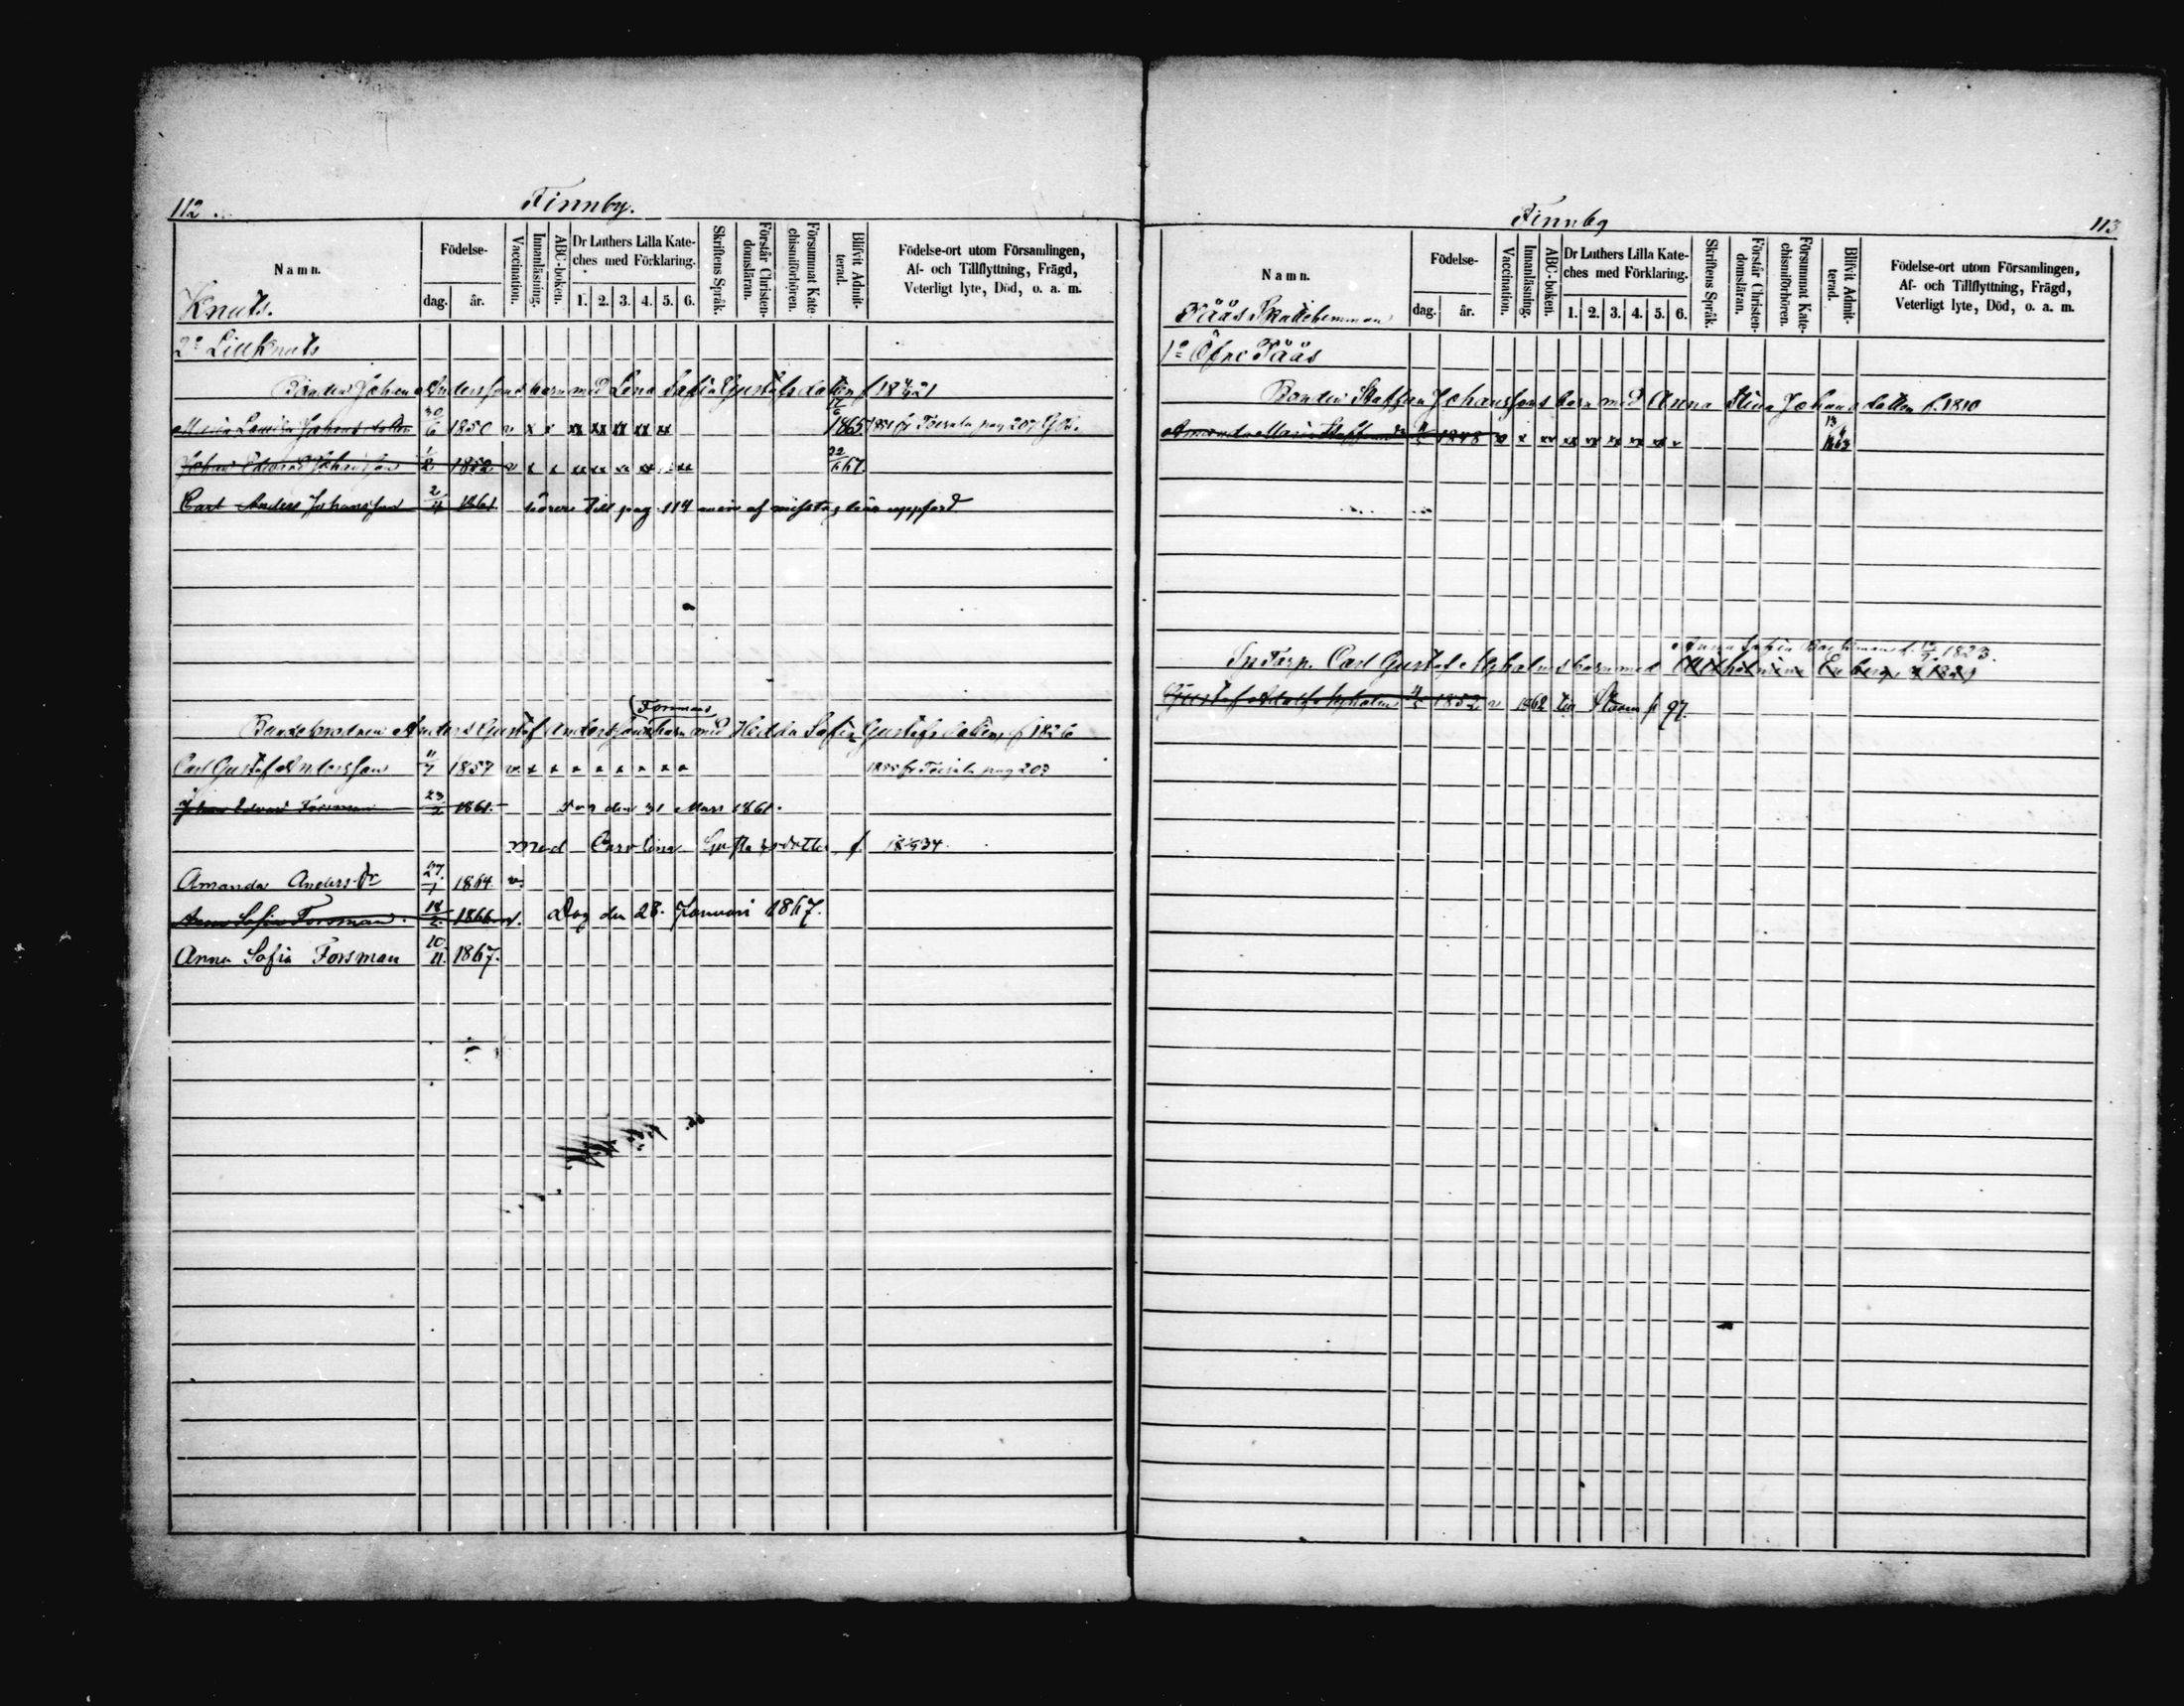 112
Finnby.
Namn.
Födelse-
dag.
år.
Vaccination.
Innanläsning.
ABC-boken.
Dr Luthers Lilla Kate-
ches med Förklaring.
1. 2. 3. 4. 5. 6.
Skriftens Språk.
Förstår Christen-
domsläran.
Försummat Kate-
chismiförhören.
Blifvit Admit-
terad.
Födelse-ort utom Församlingen,
Af- och Tillflyttning, Frägd,
Veterligt lyte, Död, o. a. m.
Knuts.
2o Lillknuts
Bonden Johan Anderssons barn med Lena Sofia Gustafsdotter f 18 21
Maria Lovisa Johansdotter 30/6 1850 v x x xx xx xx xx xx 1865
Johan Edvard Johansson 1852 v x x xx xx xx xx xx 22/6 67.
Carl Anders Johansson 2/4 1861 hörer till pag. 114 men af misstag här uppförd
(Forsmans)
Anders Gustaf Anderssons barn med Hedda Sofia Gustafsdotter f 1826
Carl Gustaf Andersson 11/7 1857 v x x x x x x x x
Johan Edvard Forsman 23/2 1861. Dog den 31 Mars 1861.
med Carolina Gustafsdotter f. 18 34.
Amanda Anders dr 27./1 1864. v.
Anna Sofia Forsman. 18/ 1866 v. Dog den 28. Januari 1867.
Anna Sofia Forsman 10./11. 1867.
Finnby
113
Namn.
Födelse-
dag.
år.
Vaccination.
Innanläsning.
ABC-boken.
Dr Luthers Lilla Kate-
ches med Förklaring.
1. 2. 3. 4. 5. 6.
Skriftens Språk.
Förstår Christen-
domsläran.
Försummat Kate-
chismiförhören.
Blifvit Admit-
terad.
Födelse-ort utom Församlingen,
Af- och Tillflyttning, Frägd,
Veterligt lyte, Död, o. a. m.
Pääs Skattehemman
1o Öfre Pääs
Bonden Staffan Johanssons barn med Anna Stina Johansdotter f. 1810
Amanda Maria 1848 v x xx xx xx xx xx xx v 1863
Anna Sofia 1823.
Carl Gustaf barn med
Gustaf Adolf 1852 v 1862 till p 97.